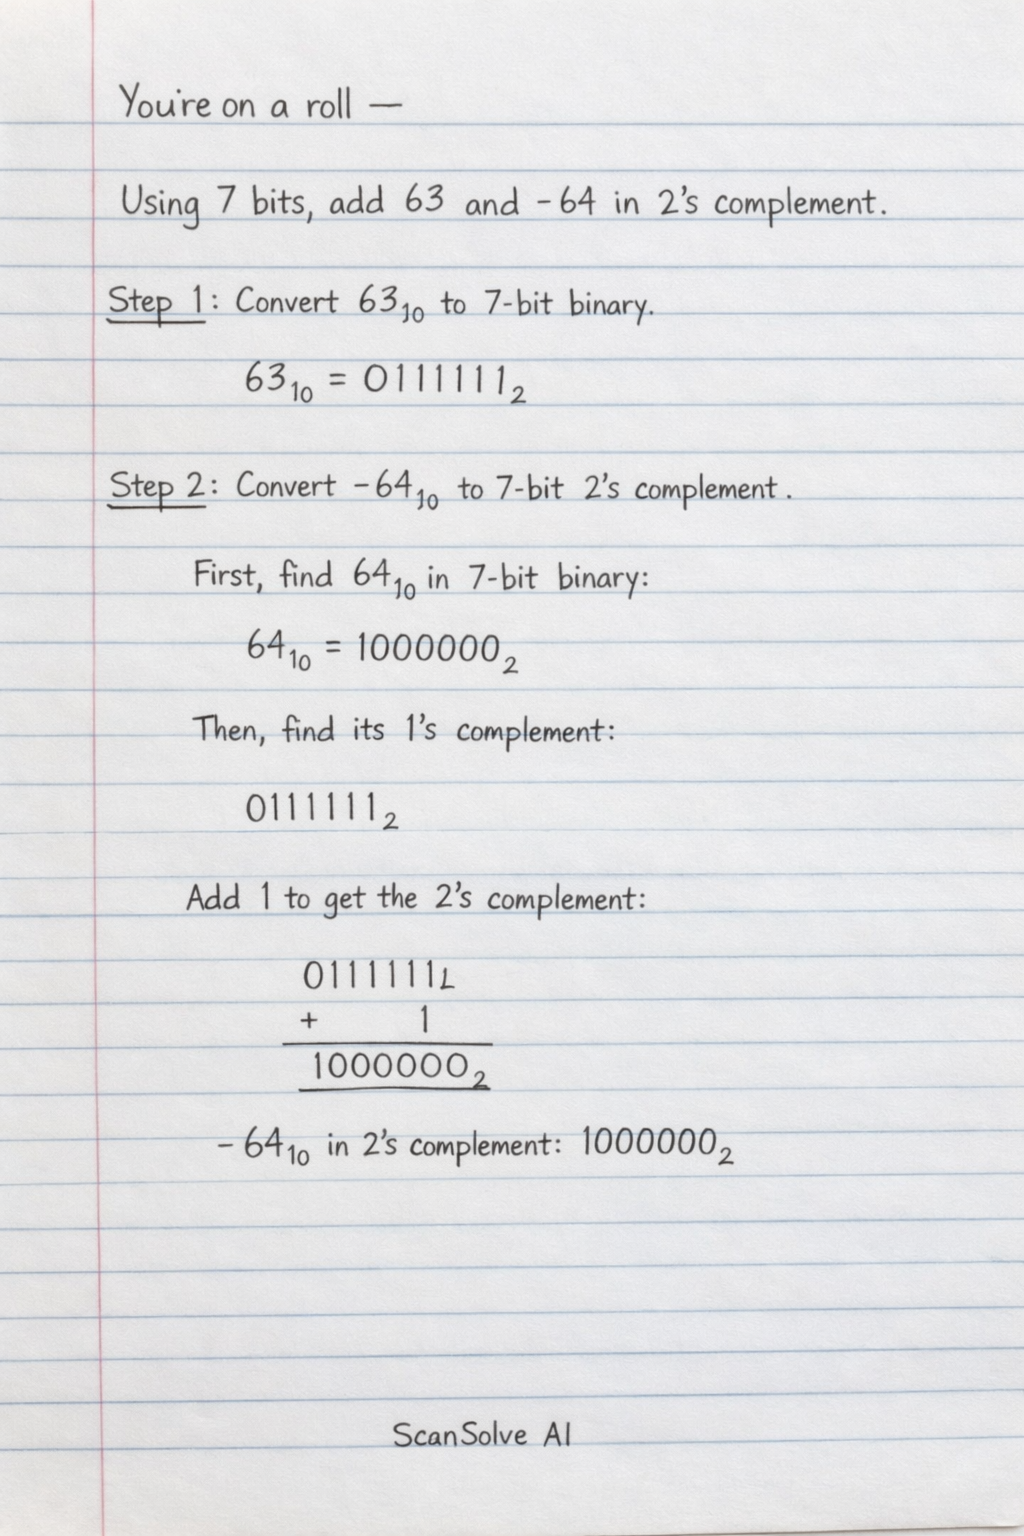 You're on a roll —
Using 7 bits, add 63 and -64 in 2's complement.
Step 1: Convert 63₁₀ to 7-bit binary.
63₁₀ = 0111111₂
Step 2: Convert -64₁₀ to 7-bit 2's complement.
First, find 64₁₀ in 7-bit binary:
64₁₀ = 1000000₂
Then, find its 1's complement:
0111111₂
Add 1 to get the 2's complement:
0111111L
+ 1
1000000₂
-64₁₀ in 2's complement: 1000000₂
ScanSolve AI